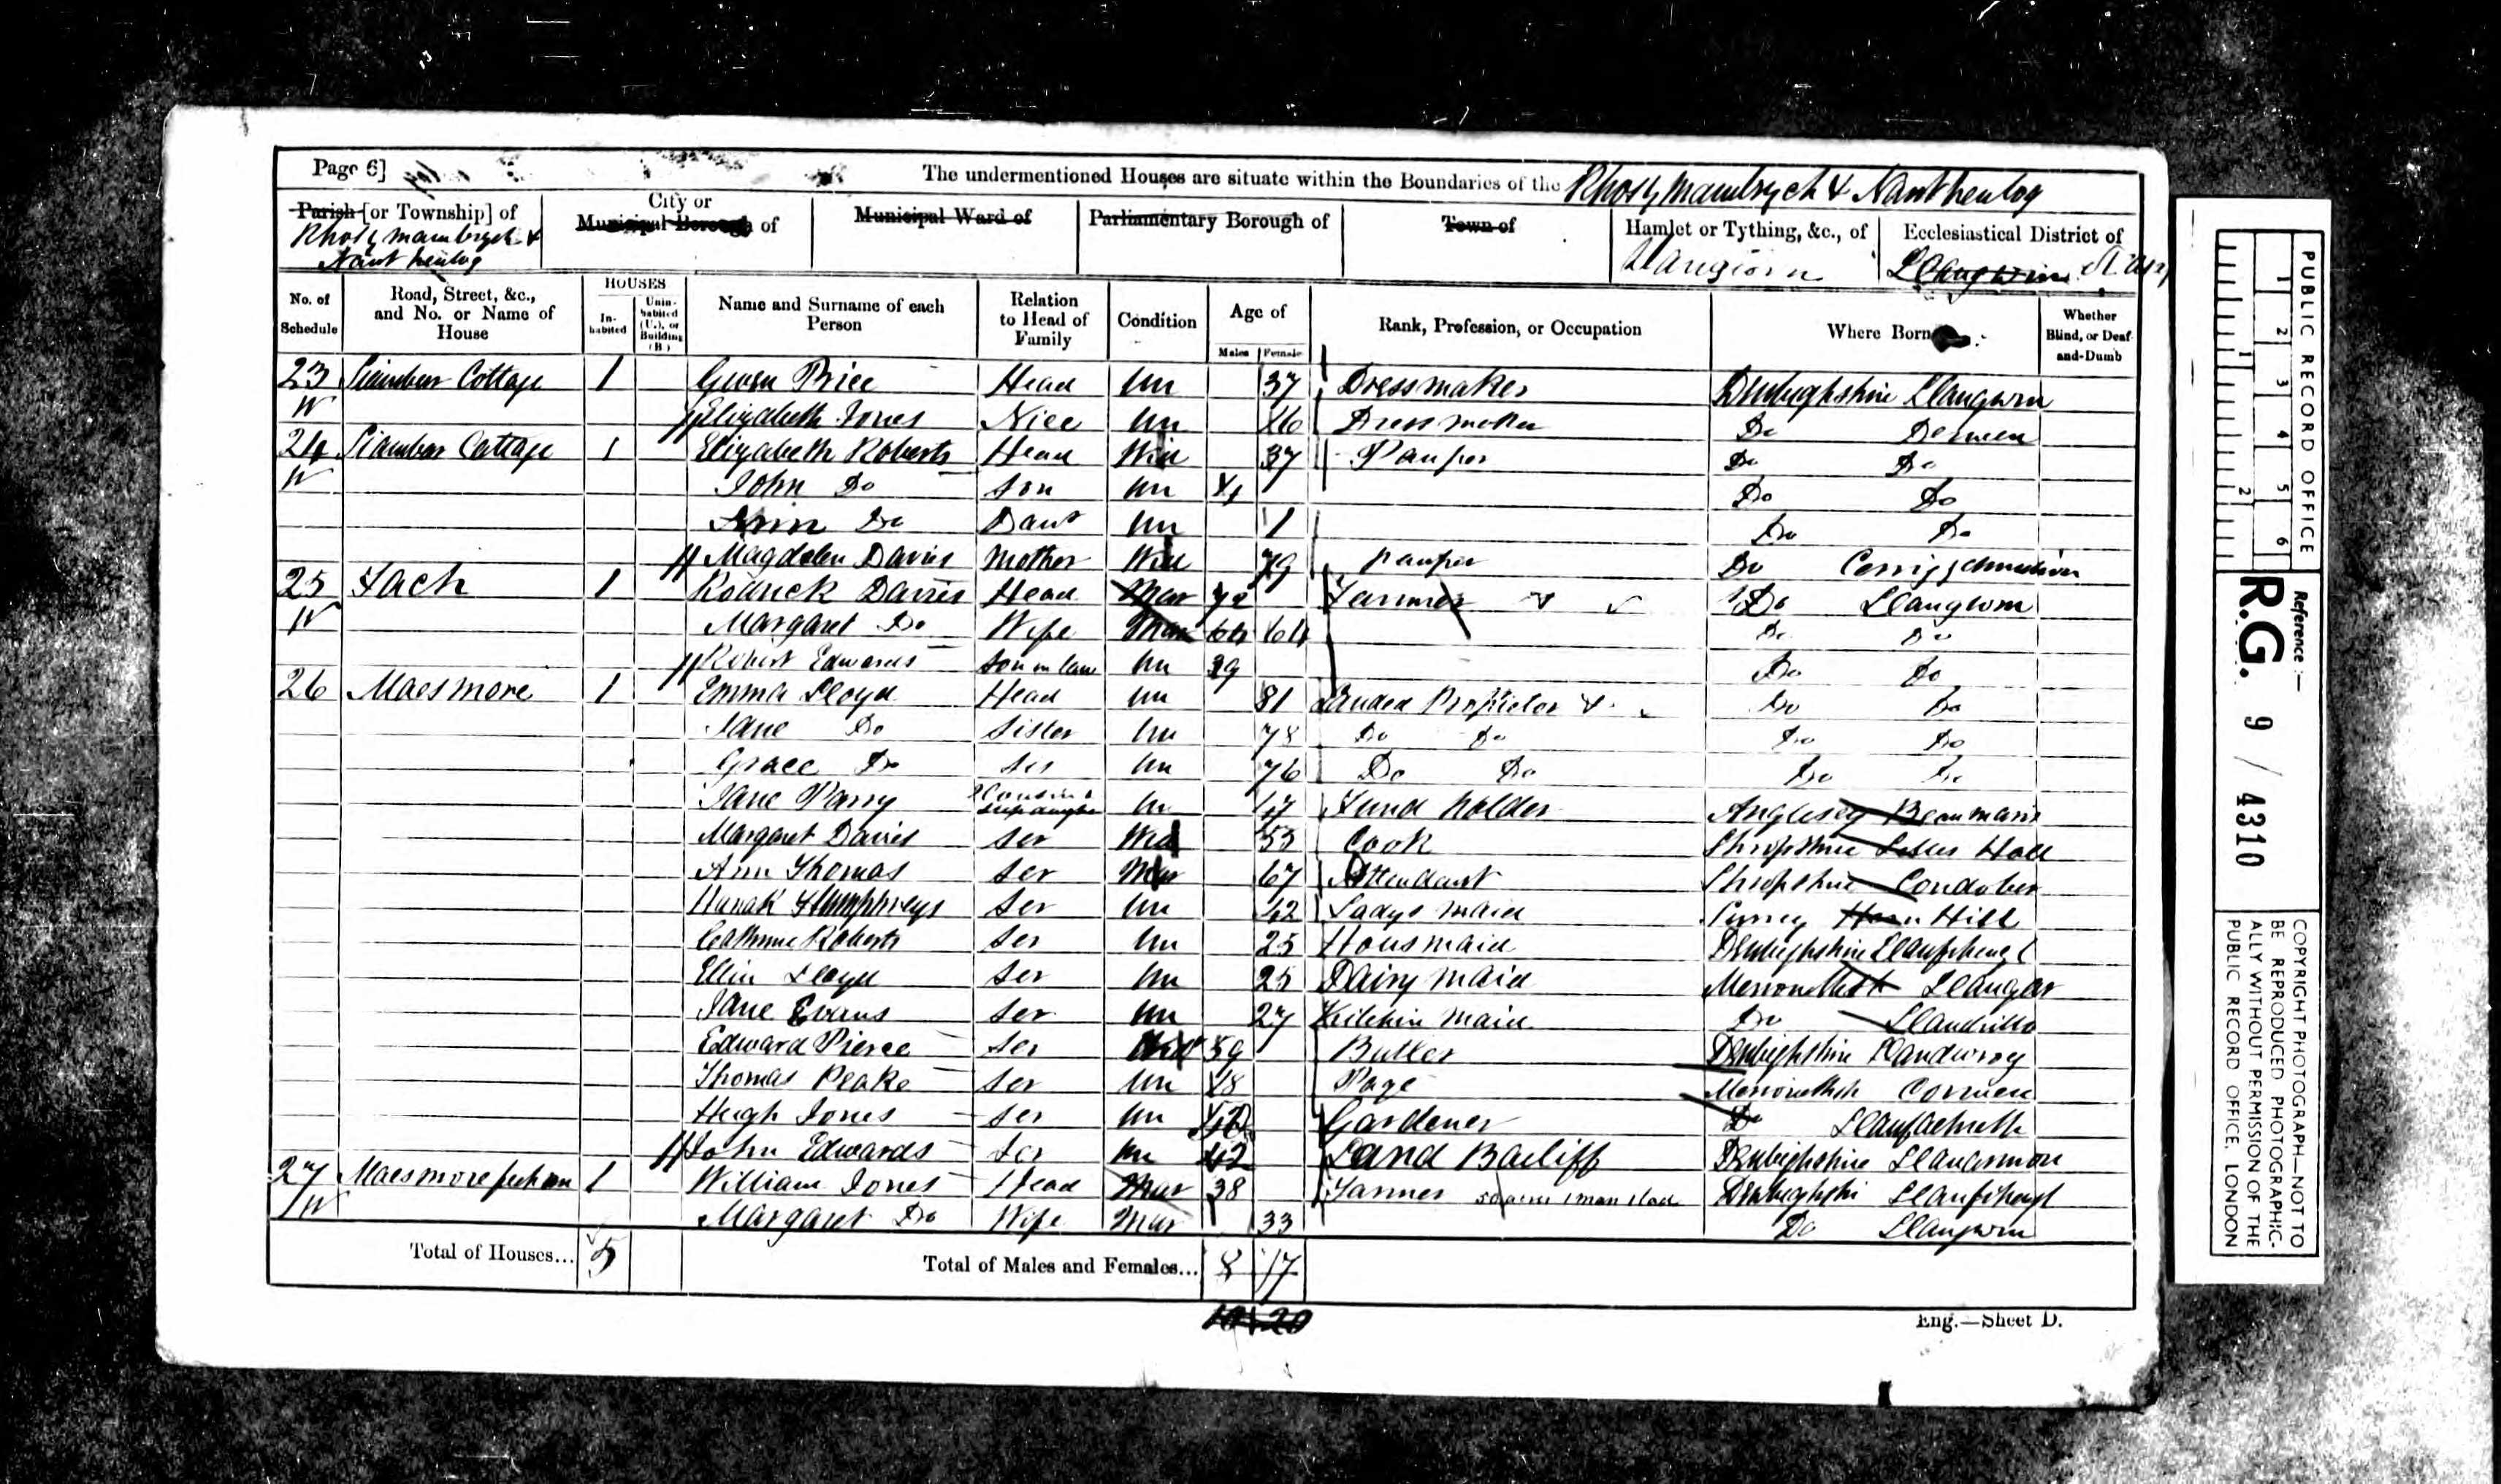 Page 6] The undermentioned Houses are situate within the Boundaries of the Rhosymaenbrych & Nant heulog
Parish [or Township] of City or Municipal Borough of Municipal Ward of Parliamentary Borough of Town of Hamlet or Tything, &c., of Ecclesiastical District of
Nant heulog Llangwm
No. of Schedule Road, Street, &c., and No. or Name of House HOUSES Inhabited Uninhabited (U.), or Building (B.) Name and Surname of each Person Relation to Head of Family Condition Age of Males Females Rank, Profession, or Occupation Where Born Whether Blind, or Deaf-and-Dumb
23 Siambar Cottage 1 Gwen Price Head Un 37 Dressmaker Denbighshire Llangwm
Elizabeth Jones Niec Un 16 Dressmaker Do Derwen
24 Siambar Cottage 1 Elizabeth Roberts Head Wid 37 Pauper Do Do
John Do Son Un 4 Do Do
Ann Do Daur Un 1 Do Do
Magdalen Davies Mother Wid 79 Pauper Do
25 Fach 1 Rodrick Davies Head Mar 72 Farmer Do Llangwm
Margaret Do Wife Mar 64 64 Do Do
Robert Edwards Son in law Un 39 Do Do
26 Maesmore 1 Emma Lloyd Head Un 81 Landed Proprietor Do Do
Jane Do Sister Un 78 Do Do Do Do
Grace Do Sis Un 76 Do Do Do Do
Jane Parry Cousin Un 47 Fund holder Anglesey Beaumaris
Margaret Davies Ser Wid 53 Cook Shropshire Hall
Ann Thomas Ser Mar 67 Attendant Shropshire Condober
Hanah Humphreys Ser Un 42 Ladys Maid Surrey Ham Hill
Cathrine Roberts Ser Un 25 Housmaid Denbighshire Llanfihangel
Elin Lloyd Ser Un 25 Dairy Maid Merioneth Llangar
Jane Evans Ser Un 27 Kitchin Maid Do Llandrillo
Edward Pierce Ser 59 Butler Denbighshire
Thomas Peake Ser Un 18 Page Merionethsh Corwen
Hugh Jones Ser Un 42 Gardener Do Llanfachreth
John Edwards Ser Un 42 Land Bailiff Denbighshire Llanarmon
27 Maesmore fechan 1 William Jones Head Mar 38 Farmer 50 acres 1 man 1 lad Llanfihangl
Margaret Do Wife Mar 33 Do Llangwm
Total of Houses... 5 Total of Males and Females... 8 17
Eng.—Sheet D.
PUBLIC RECORD OFFICE
1 2 3 4 5 6
1 2
Reference:—
R.G. 9 / 4310
COPYRIGHT PHOTOGRAPH—NOT TO BE REPRODUCED PHOTOGRAPHICALLY WITHOUT PERMISSION OF THE PUBLIC RECORD OFFICE, LONDON